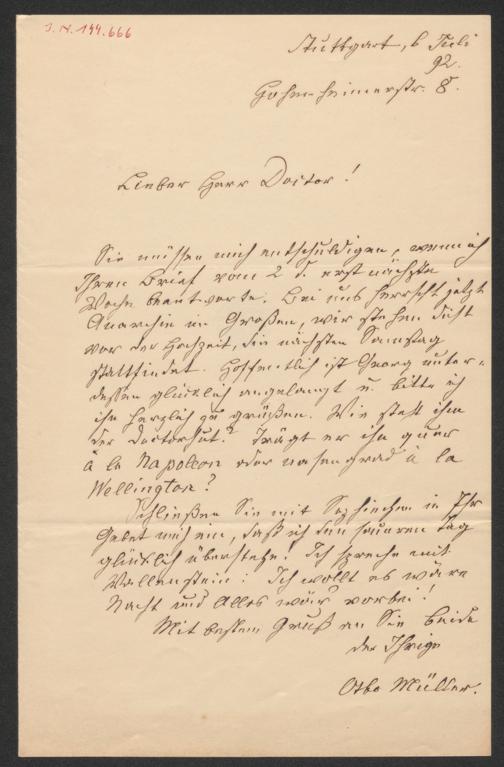 I.N. 144.666
Stuttgart, 6 Juli
92.
Hohenheimerstr. 8.
Lieber Herr Doctor!
Sie müssen mich entschuldigen, wenn ich
Ihren Brief vom 2 d. erst nächste
Woche beantworte. Bei uns herrscht jetzt
Anarchie im Großen, wir stehen dicht
vor der Hochzeit, die nächsten Samstag
stattfindet. Hoffentlich ist Georg unter-
dessen glücklich angelangt u. bitte ich
ihn herzlich zu grüßen. Wie steht ihm
der Doctorhut? Trägt er ihn quer
à la Napoleon oder nasengrad à la
Wellington?
Schließen Sie mit in Ihr
Gebet mich ein, daß ich den sauren Tag
glücklich überstehe! Ich spreche mit
Wallenstein: Ich wollt es wäre
Nacht und Alles wär' vorbei!
Mit bestem Gruß an Sie beide
der Ihrige
Otto Müller.